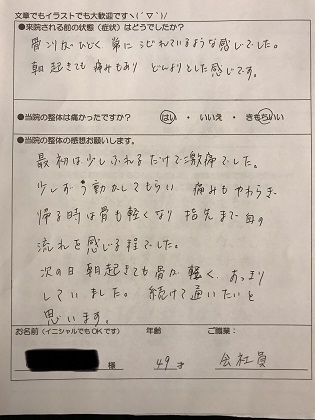 文章でもイラストでも大歓迎ですヽ(´▽`)/
●来院される前の状態(症状)はどうでしたか?
骨こりがひどく 常にしびれているような感じでした。
朝起きても痛みもあり どんよりとした感じです。
●当院の整体は痛かったですか? はい ・ いいえ ・ きもちいい
●当院の整体の感想お願いします。
最初は少しふれるだけで激痛でした。
少しずつ動かしてもらい 痛みもやわらぎ
帰る時は骨も軽くなり 指先まで血の
流れを感じる程でした。
次の日朝起きても骨が軽く、あっさり
していました。続けて通いたいと
思います。
お名前(イニシャルでもOKです) 年齢 ご職業:
様 49才 会社員